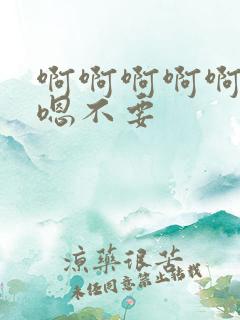 啊啊啊啊啊
嗯不要
凉药很苦
未经同意禁止转载